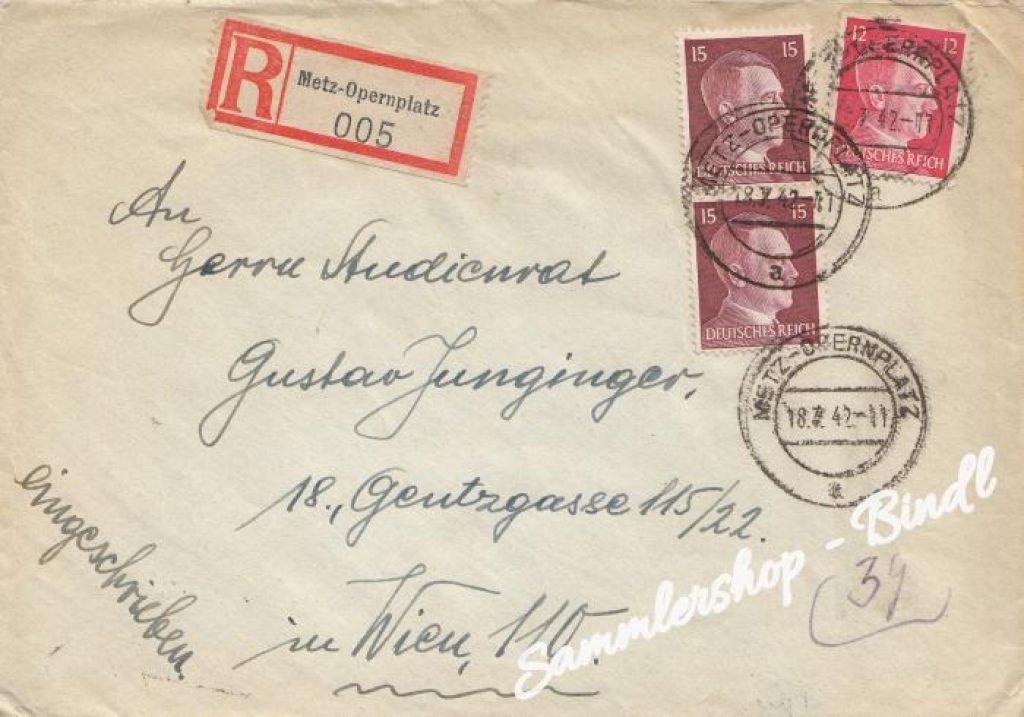 R
Metz-Opernplatz
005
15 15
DEUTSCHES REICH
12 12
DEUTSCHES REICH
15 15
DEUTSCHES REICH
METZ-OPERNPLATZ
18.7.42-11
a
METZ-OPERNPLATZ
18.7.42-11
An
Herrn Studienrat
Gustav Junginger,
18., Gentzgasse 115/22.
in Wien, 110.
eingeschrieben.
Sammlershop - Bindl